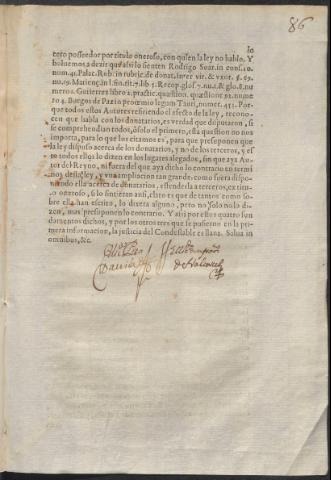 86
10
cero posseedor por titulo oneroso, con quien la ley no hablo. Y
boluemos a dezir que assi lo sienten Rodrigo Suar. in cons. 10.
num. 4. Palac. Rub. in rubric. de donat. inter vir. & vxor. §. 69.
num. 19. Matiençan l. fin. tit. 7. lib. 5. Recop. glos. 7. nu. 2. & glo. 8. nu
mero 2. Gutierrez libro 2. practic. question. quæstione 92. nume
ro 4. Burgos de Paz in proœmio legum Tauri, numer. 451. Por-
que todos estos Autores refiriendo el efecto de la ley, recono-
cen que habla con los donatarios, es verdad que disputaron, si
se comprehendian todos, ò solo el primero, esta question no nos
importa, para lo que los citamos es, para que presuponen que
la ley dispuso acerca de los donatarios, y no de los terceros, y es-
to todos ellos lo dizen en los lugares alegados, sin que aya Au-
tor del Reyno, ni fuera del que aya dicho lo contrario en termi
nos desta ley, y vna implicacion tan grande como fuera dispo-
niendo ella acerca de donatarios, estenderla a terceros, ex titu-
lo oneroso, si lo sintieran assi, claro es que de tantos como so-
bre ella han escrito, lo dixera alguno, pero no solo no lo di-
zen, mas presuponen lo contrario. Y assi por estos quatro fun
damentos dichos, y por los otros que se pusieron en la pri-
mera informacion, la justicia del Condestable es llana. Salua in
omnibus, &c.